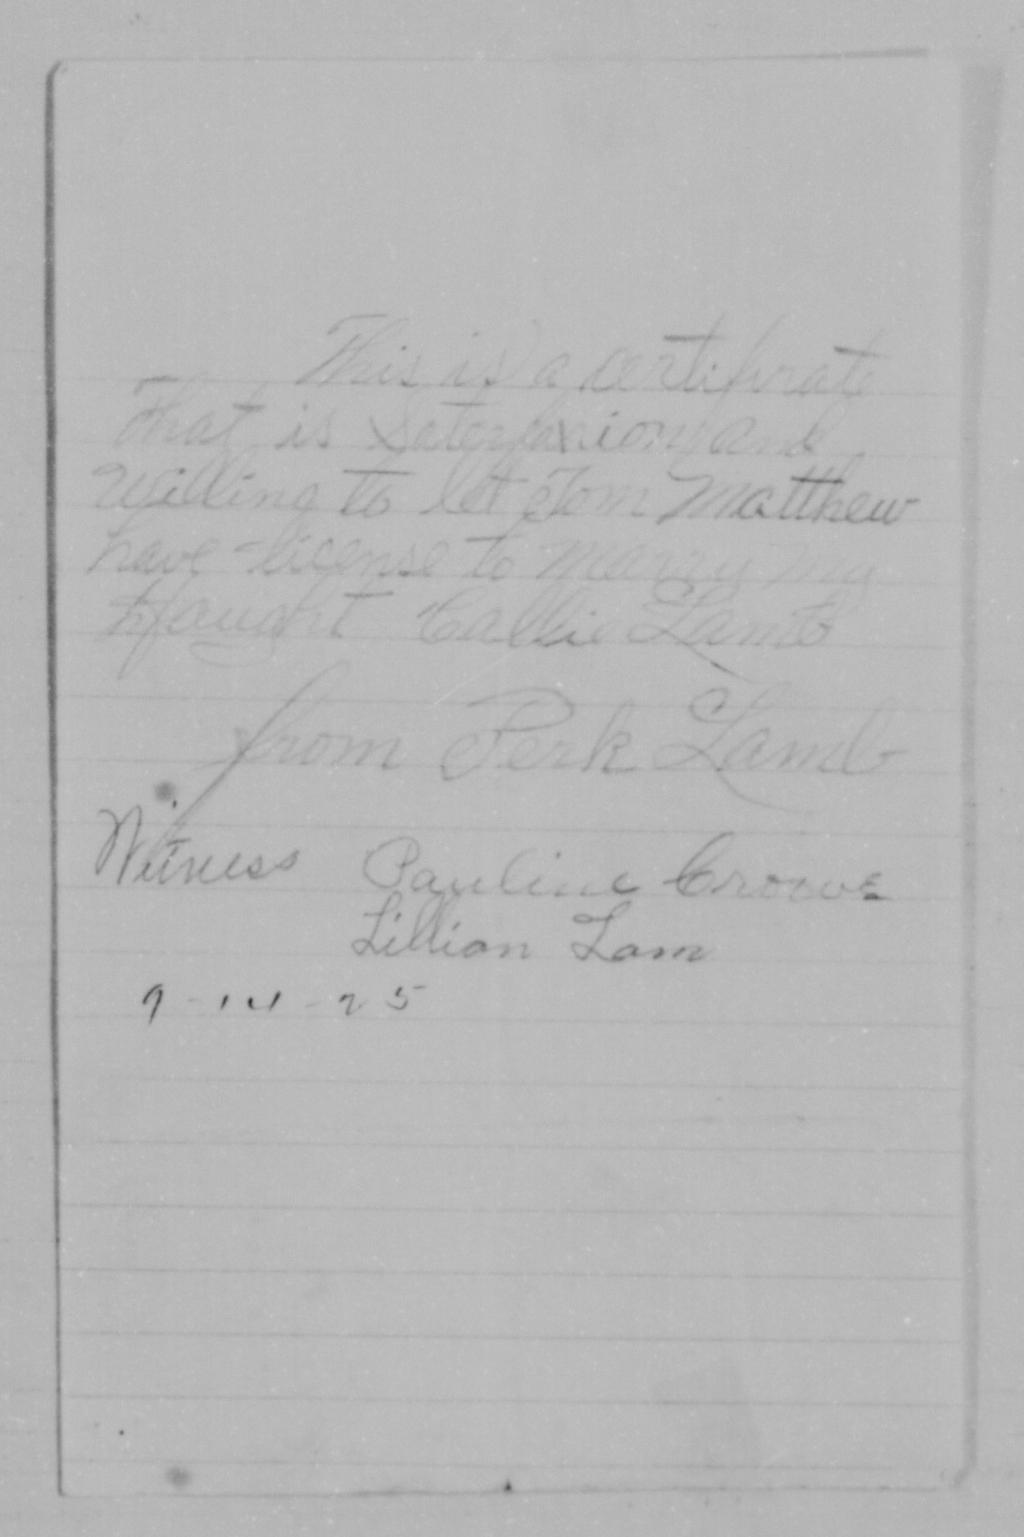 This is a certifirate
that is and
willing to let Tom Matthew
have license to marry my
Callie Lamb
from Perk Lamb
Witness Pauline Crowe
Lillian Lam
9-14-25